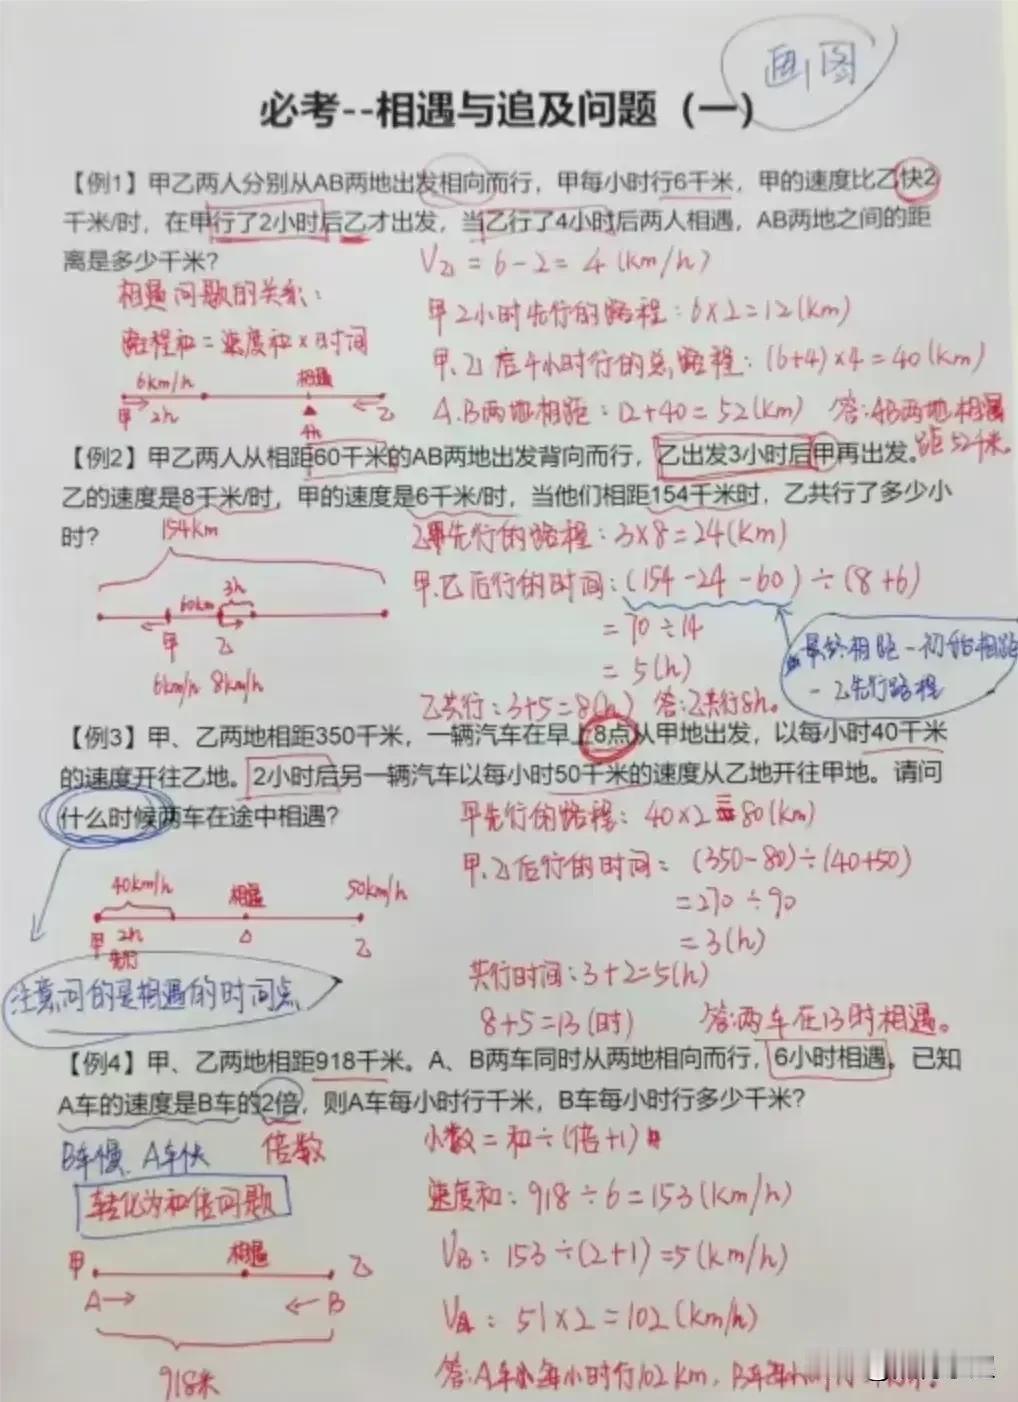 画图
必考--相遇与追及问题（一）
【例1】甲乙两人分别从AB两地出发相向而行，甲每小时行6千米，甲的速度比乙快2
千米/时，在甲行了2小时后乙才出发，当乙行了4小时后两人相遇，AB两地之间的距
离是多少千米？
V乙 = 6-2 = 4 (km/h)
相遇问题的关系：
甲2小时先行的路程：6×2=12(km)
路程和=速度和×时间
甲、乙后4小时行的总路程：(6+4)×4=40(km)
6km/h 相遇
甲 2h 4h 乙
A.B两地相距：12+40=52(km) 答：AB两地相
距52千米。
【例2】甲乙两人从相距60千米的AB两地出发背向而行，乙出发3小时后甲再出发。
乙的速度是8千米/时，甲的速度是6千米/时，当他们相距154千米时，乙共行了多少小
时？
154km
乙先行的路程：3×8=24(km)
甲、乙后行的时间：(154-24-60)÷(8+6)
60km 3h
甲 乙
=70÷14
6km/h 8km/h
=5(h)
最终相距-初始相距
-乙先行路程
乙共行：3+5=8(h) 答：乙共行8h。
【例3】甲、乙两地相距350千米，一辆汽车在早上8点从甲地出发，以每小时40千米
的速度开往乙地。2小时后另一辆汽车以每小时50千米的速度从乙地开往甲地。请问
什么时候两车在途中相遇？
甲先行的路程：40×2=80(km)
甲、乙后行的时间：(350-80)÷(40+50)
40km/h 相遇 50km/h
=270÷90
甲 2h 乙
先行
=3(h)
注意问的是相遇的时间点
共行时间：3+2=5(h)
8+5=13(时) 答：两车在13时相遇。
【例4】甲、乙两地相距918千米。A、B两车同时从两地相向而行，6小时相遇。已知
A车的速度是B车的2倍，则A车每小时行千米，B车每小时行多少千米？
B车慢、A车快 倍数
小数=和÷(倍+1)
转化为和倍问题
速度和：918÷6=153(km/h)
甲 相遇 乙
VB：153÷(2+1)=5(km/h)
A B
VA：51×2=102(km/h)
918米
答：A车每小时行102km，B车每